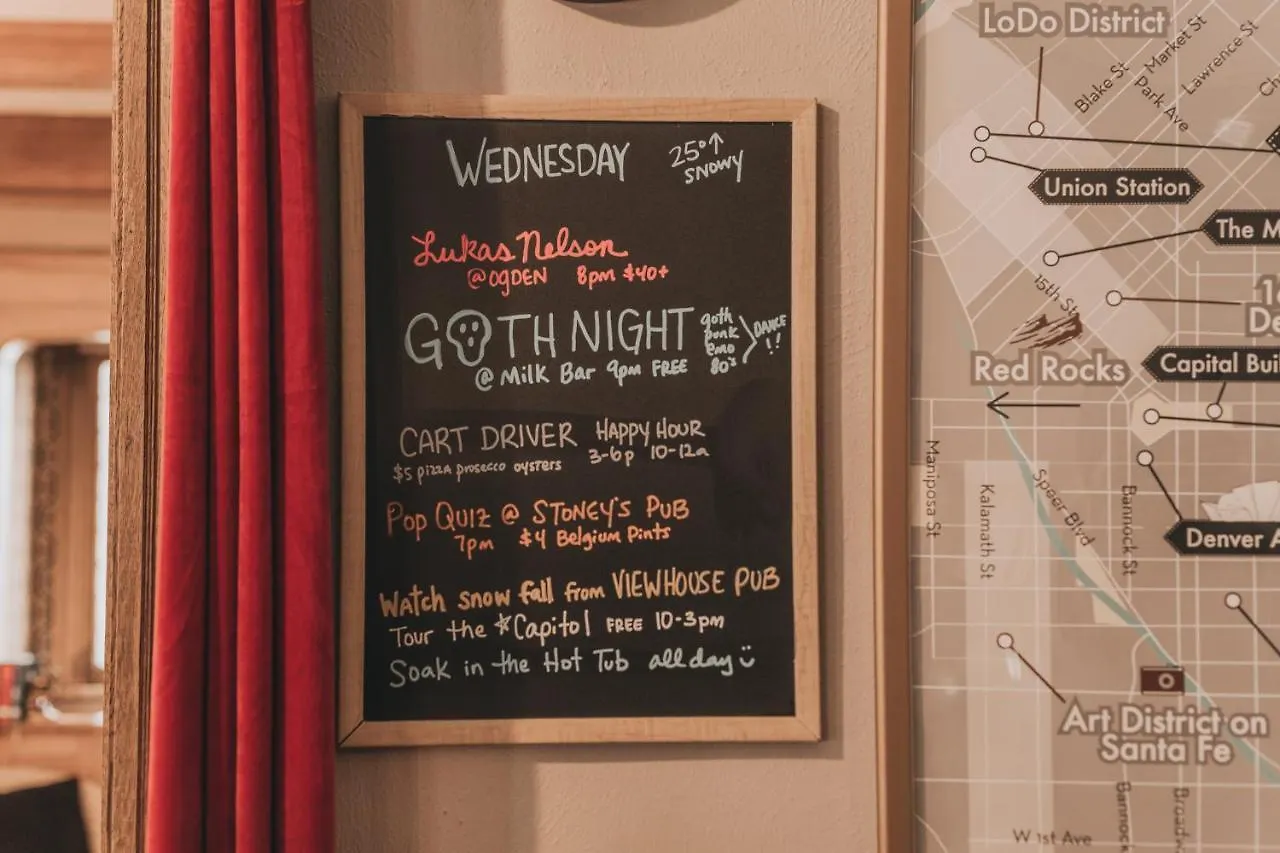 WEDNESDAY
25° ↑
SNOWY
Lukas Nelson
@ OGDEN 8pm $40+
GOTH NIGHT
goth
punk
emo
80's
DANCE
!!
@ Milk Bar 9pm FREE
CART DRIVER HAPPY HOUR
$5 pizza prosecco oysters 3-6p 10-12a
Pop Quiz @ STONEY'S PUB
7pm $4 Belgium Pints
Watch snow fall from VIEWHOUSE PUB
Tour the *Capitol FREE 10-3pm
Soak in the Hot Tub all day
LoDo District
Blake St
Market St
Park Ave
Lawrence St
Union Station
The M
15th St
Red Rocks
Capital Bui
Mariposa St
Kalamath St
Speer Blvd
Bannock St
Denver A
Art District on
Santa Fe
Bannoc
Broad
W 1st Ave